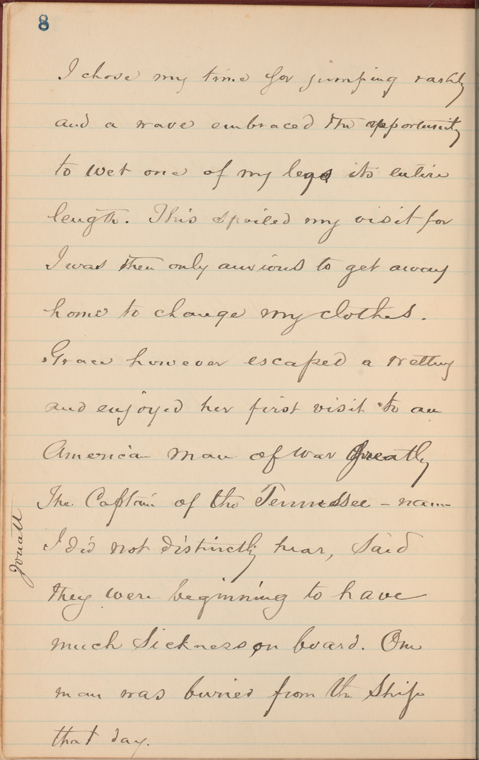 8
I chose my time for jumping rashly
and a wave embraced the opportunity
to wet one of my legs its entire
length. This spoiled my visit for
I was then only anxious to get away
home to change my clothes.
Grace however escaped a wetting
and enjoyed her first visit to an
America man of war greatly
The Captain of the Tennessee - name
I did not distinctly hear, said
they were beginning to have
much Sickness on board. One
man was buried from the Ship
that day.
Jouatt